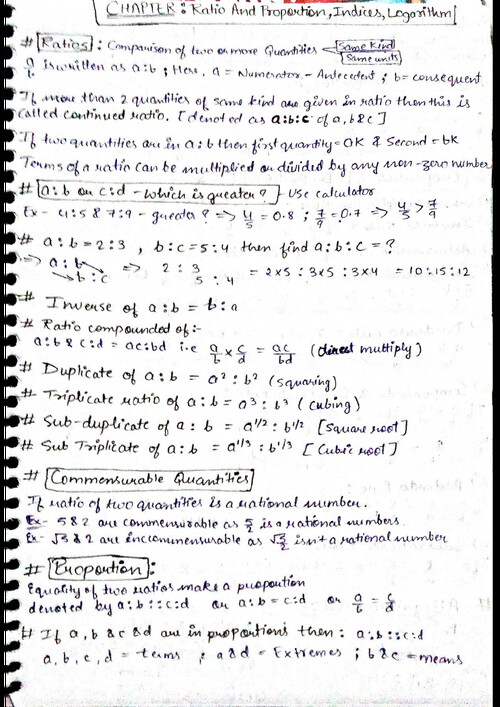 CHAPTER : Ratio And Proportion, Indices, Logarithm
# Ratios : Comparison of two or more Quantities Same Kind
Same units
a/b is written as a:b ; Here, a = Numerator - Antecedent ; b = consequent
If more than 2 quantities of same kind are given in ratio then this is
called continued ratio. [denoted as a:b:c of a, b & c]
If two quantities are in a:b then first quantity = ak & Second = bk
Terms of a ratio can be multiplied or divided by any non-zero number
# a:b or c:d - Which is greater ? Use calculator
Ex - 4:5 & 7:9 - greater ? => 4/5 = 0.8 ; 7/9 = 0.7 => 4/5 > 7/9
# a:b = 2:3 , b:c = 5:4 then find a:b:c = ?
=> a:b => 2 : 3 = 2x5 : 3x5 : 3x4 = 10:15:12
b:c 5 : 4
# Inverse of a:b = b:a
# Ratio compounded of:-
a:b & c:d = ac:bd i.e a/b x c/d = ac/bd (direct multiply)
# Duplicate of a:b = a² : b² (squaring)
# Triplicate ratio of a:b = a³ : b³ (cubing)
# Sub-duplicate of a : b = a^1/2 : b^1/2 [Square root]
# Sub Triplicate of a : b = a^1/3 : b^1/3 [Cubic root]
# Commensurable Quantities
If ratio of two quantities is a rational number.
Ex - 5 & 2 are commensurable as 5/2 is a rational numbers.
Ex - √3 & 2 are incommensurable as √3/2 isn't a rational number
# Proportion :
Equality of two ratios make a proportion
denoted by a:b :: c:d or a:b = c:d or a/b = c/d
# If a, b & c & d are in proportions then : a:b :: c:d
a, b, c, d = terms ; a & d = Extremes ; b & c = means